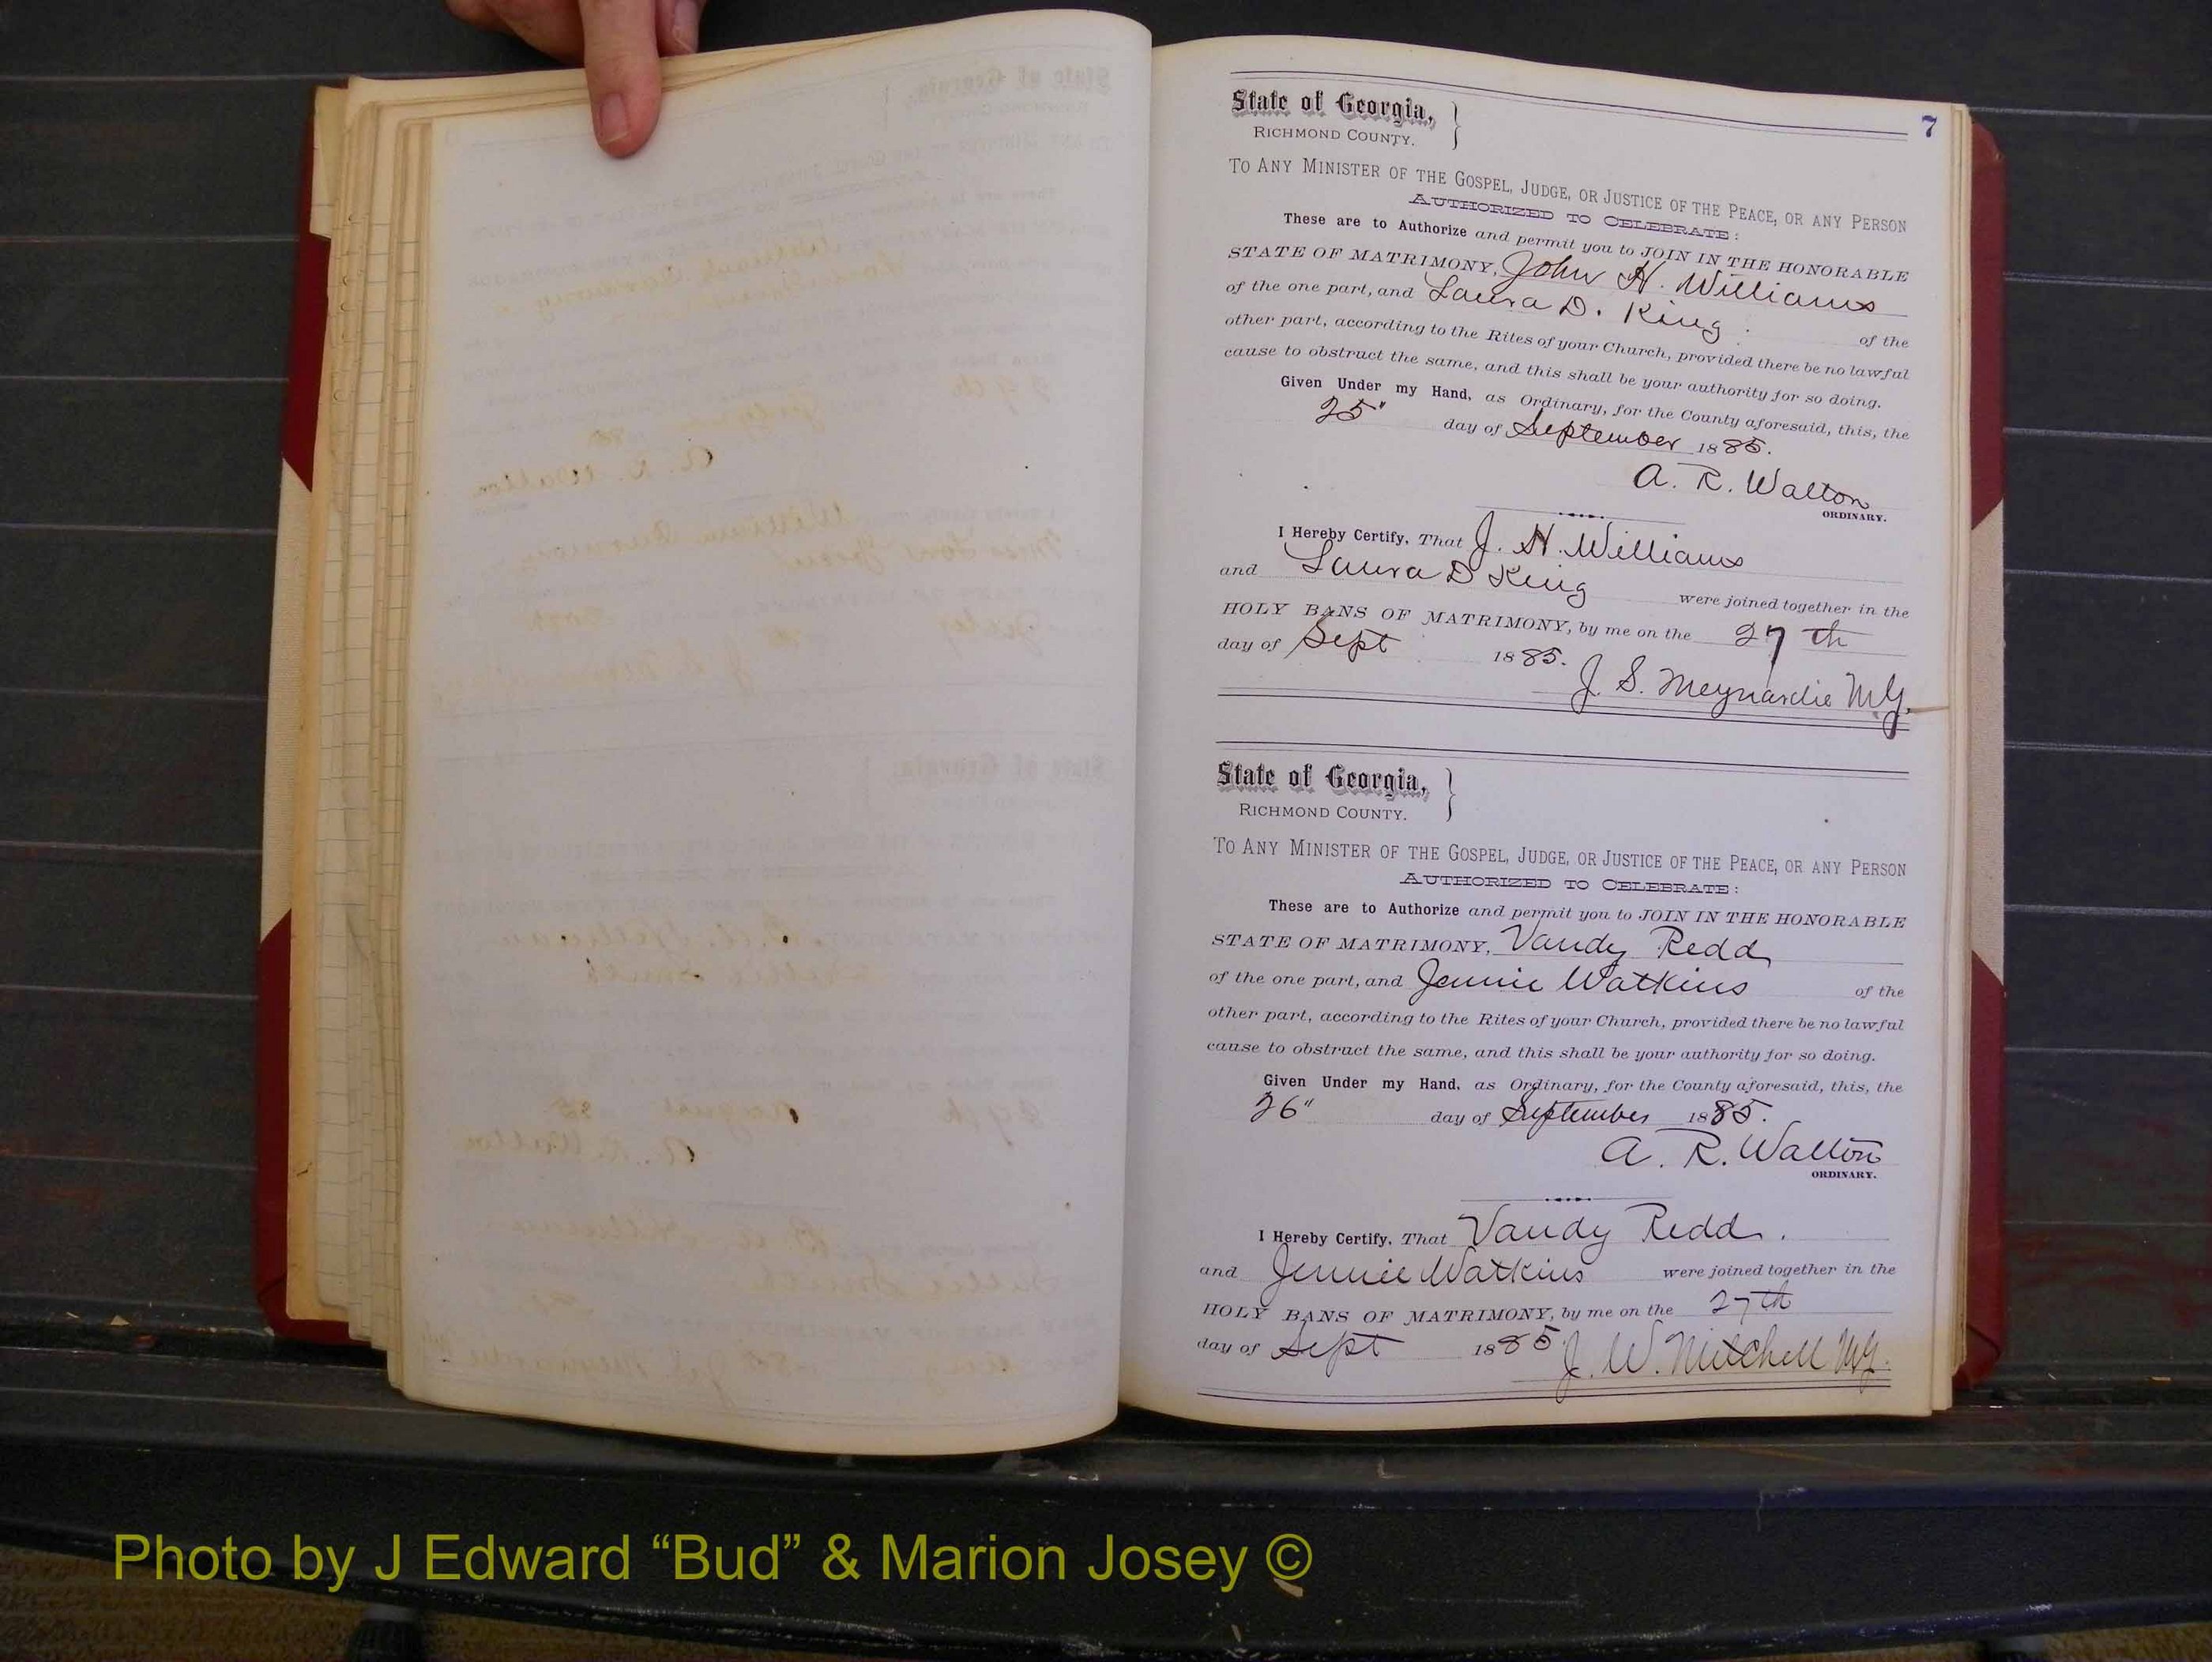 7
State of Georgia,
RICHMOND COUNTY.
TO ANY MINISTER OF THE GOSPEL, JUDGE, OR JUSTICE OF THE PEACE, OR ANY PERSON
AUTHORIZED TO CELEBRATE:
These are to Authorize and permit you to JOIN IN THE HONORABLE
STATE OF MATRIMONY, John H. Williams
of the one part, and Laura D. King of the
other part, according to the Rites of your Church, provided there be no lawful
cause to obstruct the same, and this shall be your authority for so doing.
Given Under my Hand, as Ordinary, for the County aforesaid, this, the
25" day of September 1885.
A. R. Walton
ORDINARY.
I Hereby Certify, That J. H. Williams
and Laura D King were joined together in the
HOLY BANS OF MATRIMONY, by me on the 27th
day of Sept 1885.
J. S. Meynardie M.G.
State of Georgia,
RICHMOND COUNTY.
TO ANY MINISTER OF THE GOSPEL, JUDGE, OR JUSTICE OF THE PEACE, OR ANY PERSON
AUTHORIZED TO CELEBRATE:
These are to Authorize and permit you to JOIN IN THE HONORABLE
STATE OF MATRIMONY, Vandy Redd
of the one part, and Jennie Watkins of the
other part, according to the Rites of your Church, provided there be no lawful
cause to obstruct the same, and this shall be your authority for so doing.
Given Under my Hand, as Ordinary, for the County aforesaid, this, the
26" day of September 1885.
A. R. Walton
ORDINARY.
I Hereby Certify, That Vandy Redd.
and Jennie Watkins were joined together in the
HOLY BANS OF MATRIMONY, by me on the 27th
day of Sept 1885. J. W. Mitchell M.G.
Photo by J Edward “Bud” & Marion Josey ©